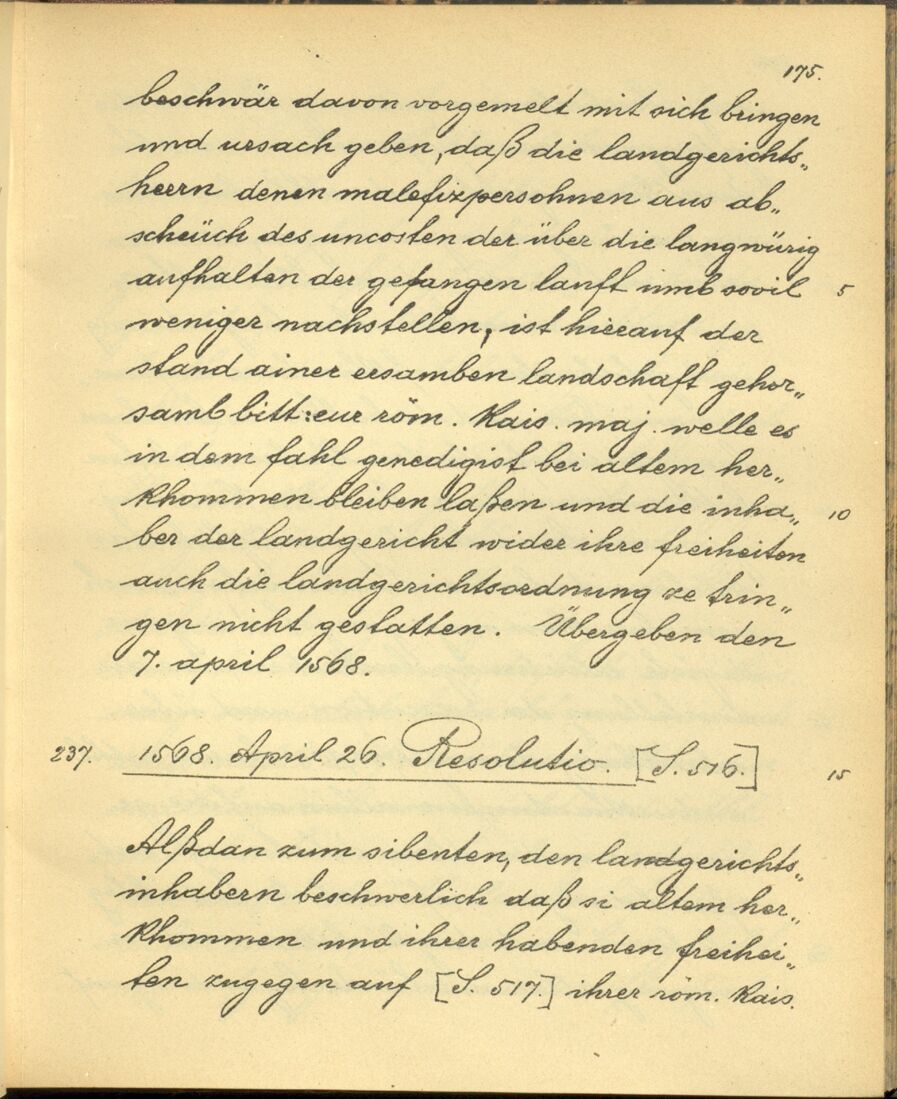 175.
beschwär davon vorgemelt mit sich bringen
und ursach geben, daß die landgerichts„
herrn denen malefizpersohnen aus ab„
scheüch des uncosten der über die langwürig
aufhalten der gefangen lauft umb sovil 5
weniger nachstellen, ist hierauf der
stand ainer ersamben landschaft gehor„
samb bitt: eur röm. Kais. maj. welle es
in dem fahl genedigist bei altem her„
khommen bleiben laßen und die inha„ 10
ber der landgericht wider ihre freiheiten
auch die landgerichtsordnung ze trin„
gen nicht gestatten. Übergeben den
7. april 1568.
237. 1568. April 26. Resolutio. [S. 516.] 15
Alßdan zum sibenten, den landgerichts„
inhabern beschwerlich daß si altem her„
khommen und ihrer habenden freihei„
ten zugegen auf [S. 517.] ihrer röm. Kais.